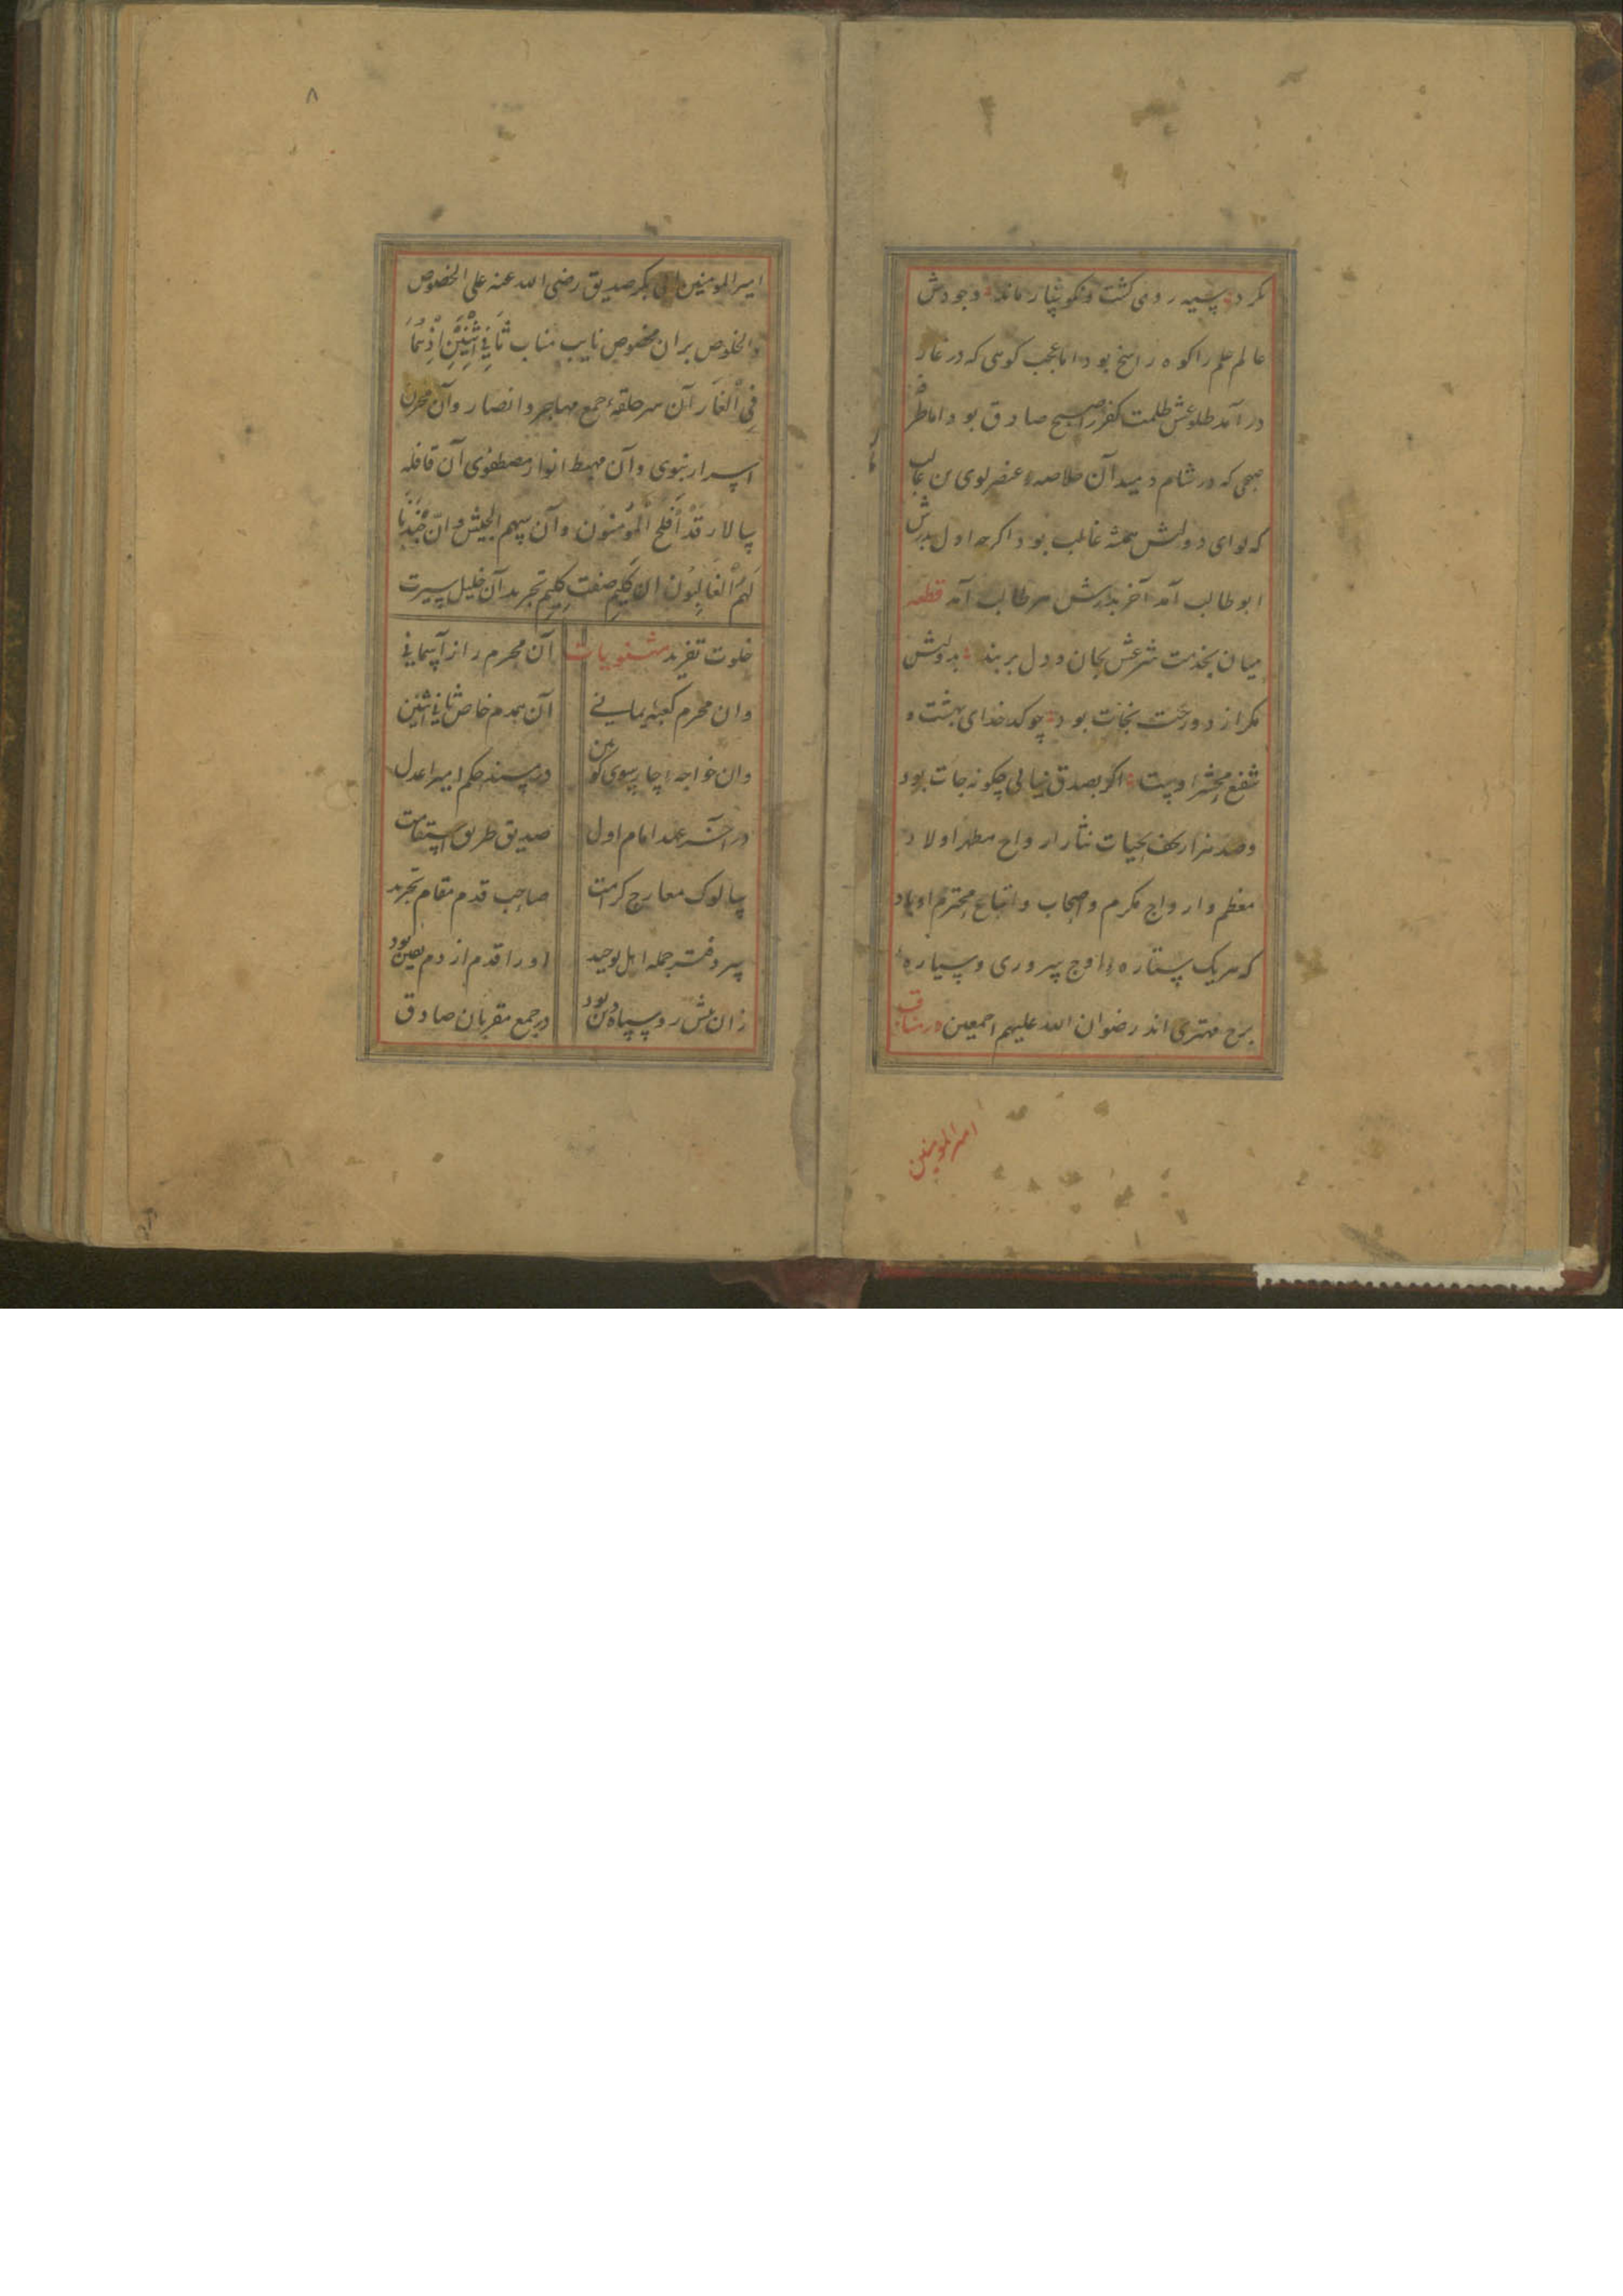 کرد سیه روی کشت و نکونسار ماند وجودش
عالم علم را کوه راسخ بود اما عجب کوهی که در غار
در آمد طلوعش ظلمت کفر را صبح صادق بود اما طرفه
صبحی که در شام دمید آن خلاصهٔ عنصر لوی بن غالب
که لوای دولتش همیشه غالب بود اکرچه اول پدرش
ابوطالب آمد آخر پدرش هر طالب آمد قطعه
میان بخدمت شرعش بجان و دل بربند بدولتش
مکر از دوزخت نجات بود چو کدخدای بهشت و
شفیع محشر اوست اکر بصدق نیالی چکونه جات بود
وصد هزار تحف تحیات نثار ارواح مطهر اولاد
معظم وازواج مکرم واصحاب واتباع محترم او باد
که هریک ستاره اوج سروری وسیاره
برج مهتری اند رضوان الله علیهم اجمعین در مناقب
امیرالمومنین
۸
امیرالمومنین ابی بکر صدیق رضی الله عنه علی الخصوص
والخلوص بران مخصوص نایب مناب ثَانِیَ اثْنَیْنِ اِذْ هُمَا
فِی الْغَار آن سرحلقهٔ جمع مهاجر وانصار وآن مخزن
اسرار نبوی وآن مهبط انوار مصطفوی آن قافله
سالار قَدْ أَفْلَحَ الْمُؤمِنُون وآن سهم الجیش وَاِنَّ جُنْدَنَا
لَهُمُ الْغَالِبُون ان کلیم صفت کلیم تجرید آن خلیل سیرت
خلوت تفرید مثنویات آن محرم راز آسمانی
وان محرم کعبهٔ یمانی آن همدم خاص ثانی اثنین
وان خواجه چار سوی کونین در مسند حکم امیر اعدل
در عهد امام اول صدیق طریق استقامت
سالوک معارج کرامت صاحب قدم مقام تجرید
سر دفتر جمله اهل توحید او را قدم از دم یقین بود
زان پیش رو سپاه دین بود در جمع مقربان صادق